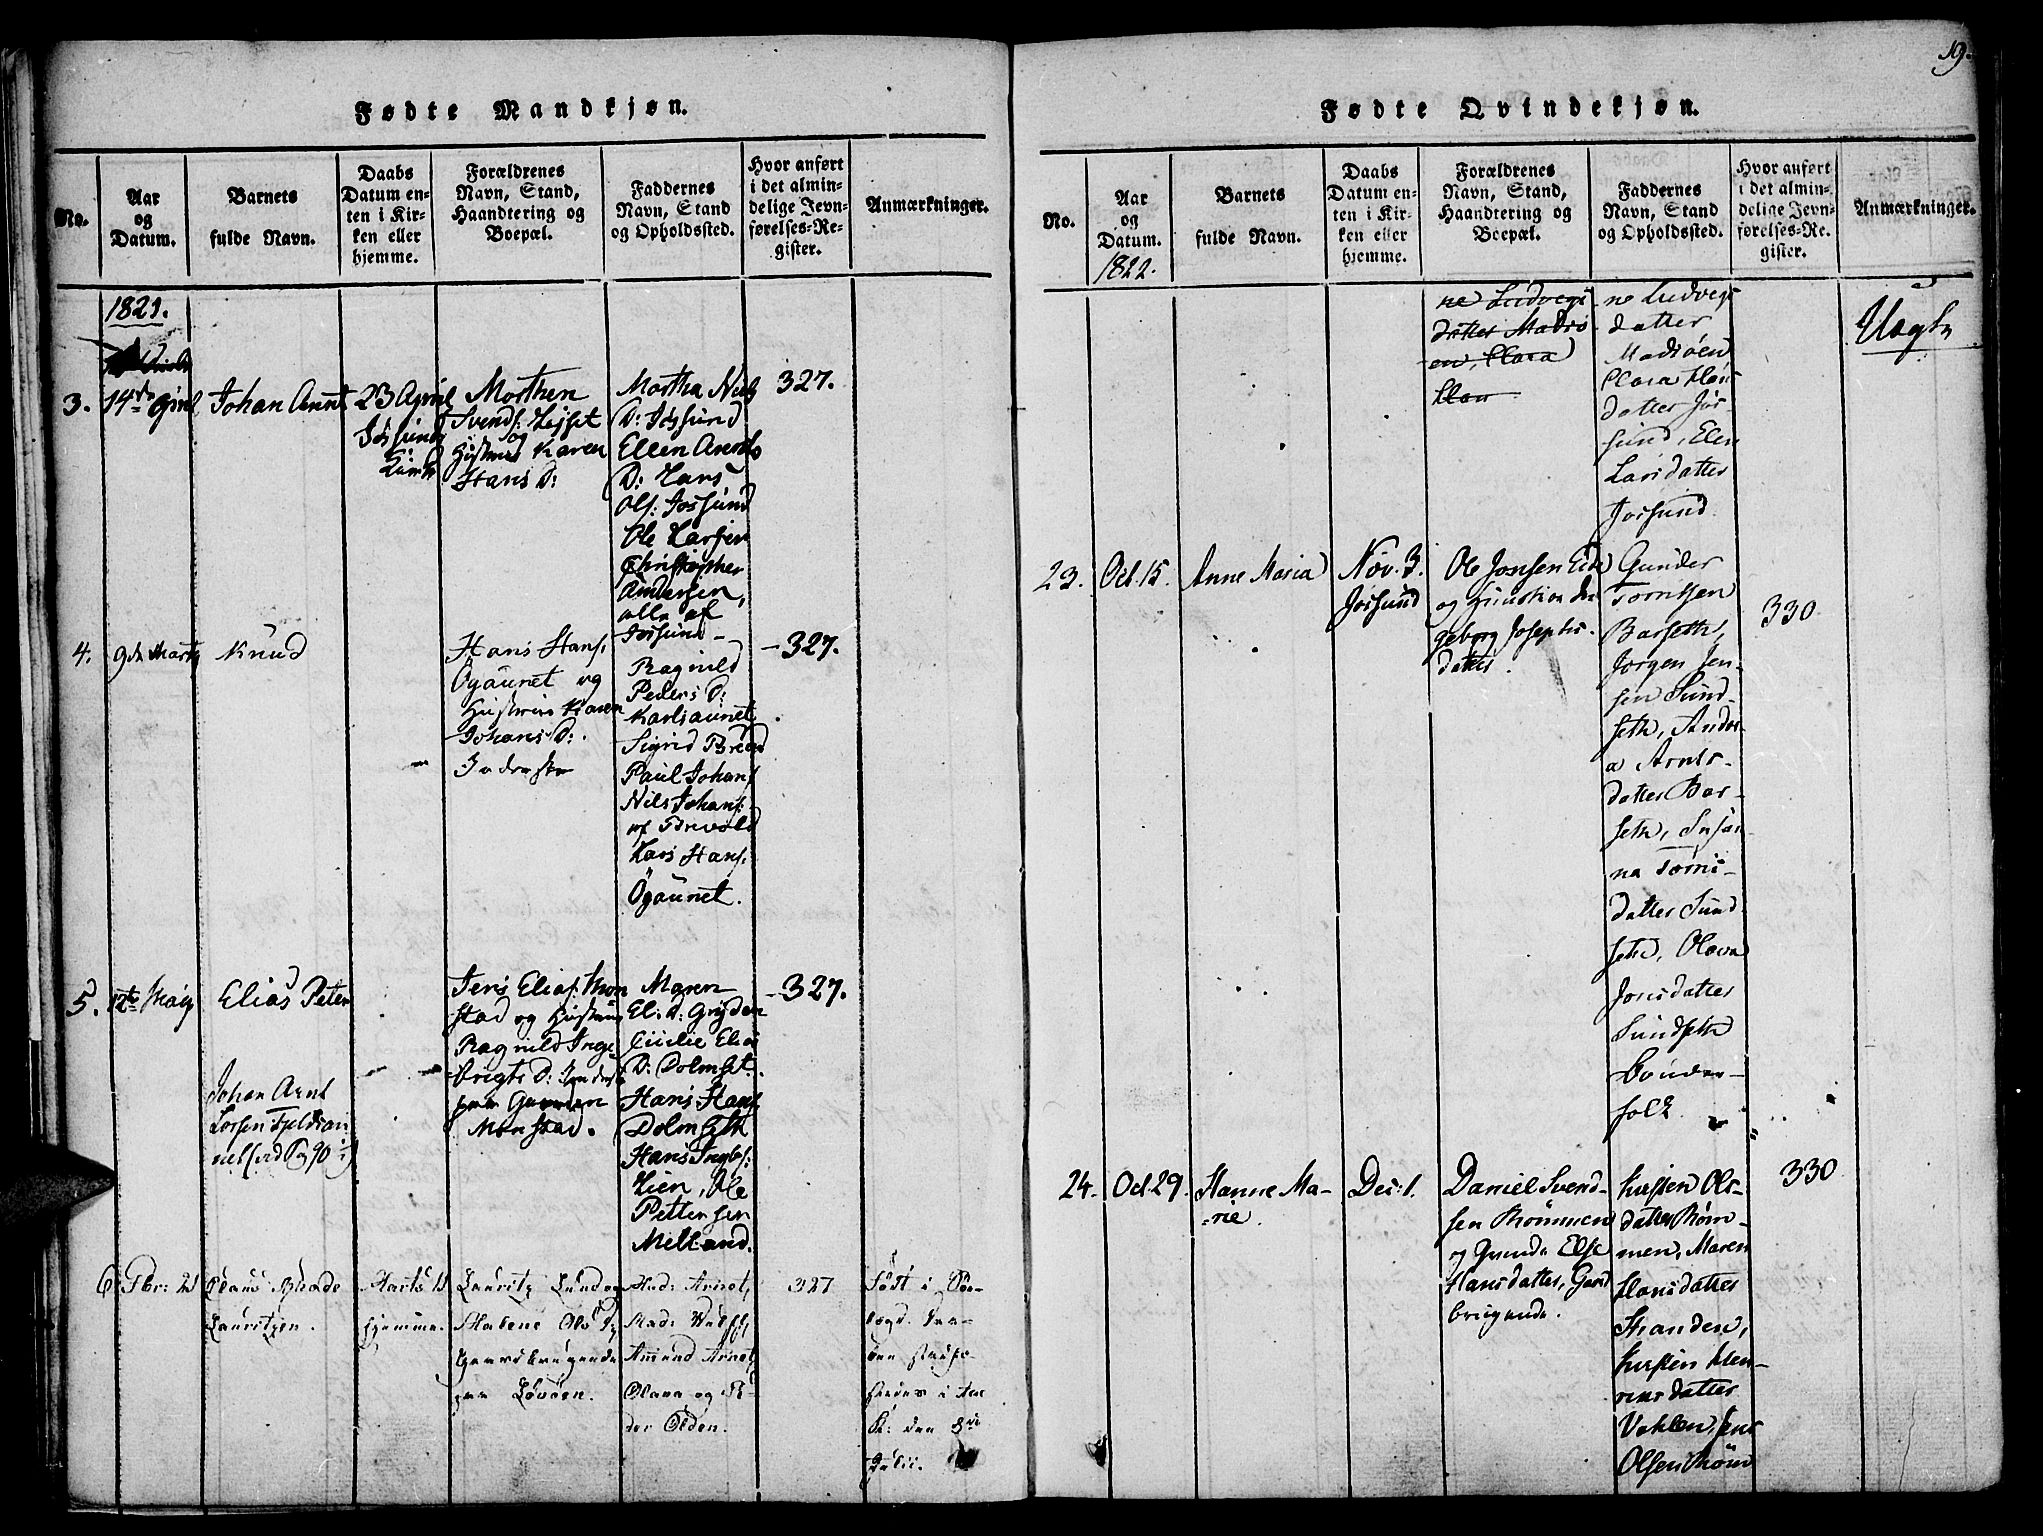 19.
Fødte Mandkjøn.
No.
Aar
og
Datum.
Barnets
fulde Navn.
Daabs
Datum en-
ten i Kir-
ken eller
hjemme.
Forældrenes
Navn, Stand,
Haandtering og
Boepæl.
Faddernes
Navn, Stand
og Opholdssted.
Hvor anført
i det almin-
delige Jevn-
førelses-Re-
gister.
Anmærkninger.
1821.
3.
14de April
Johan Arnt
23 April
Jøssund
Kirke
Morthen
Svends: Lysset
og
Hustrue Karen
Hans D:
Martha Niels
D: Jøssund
Ellen Arents
D: Lars
Ols: Jossund
Ole Larsen
Christopher
Andersen,
alle af
Jossund
327.
4.
9de Marty
Knud
Hans Hans:
Ögaunet og
Hustrue Karen
Johans D:
Ragnild
Peders D:
Karlsaunet
Sigrid Brevold
Paul Johans:
Nils Johans:
af Brevold
Lars Hans:
Ögaunet.
327.
5.
12te Maij
Elias Peter
Johan Arnt
Larsen
Jens Elias: Mon
stad og Hustrue
Ragnild Inge
brigts D:
paa
Monstad.
Maren
El: D: Gryden
Cicilie Elias
D: Dolmset.
Hans Hans:
Dolmseth
Hans Ingbr:
Lien, Ole
Pettersen
Melland.
327.
6.
Fbr: 21
Claus Blade
Lauritzen.
Marts 11
hjemme.
Lauritz Lund og
Malene Ols D:
Gaardbrugende
paa Lövöen.
Mad: Arnet,
Mad: Wulff,
Amund Arnet,
Olava og Pe-
der Olden.
327
Födt i
den 8de
Julii.
Fødte Qvindekjøn.
No.
Aar
og
Datum.
1822.
Barnets
fulde Navn.
Daabs
Datum en-
ten i Kir-
ken eller
hjemme.
Forældrenes
Navn, Stand,
Haandtering og
Boepæl.
Faddernes
Navn, Stand
og Opholdssted.
Hvor anført
i det almin-
delige Jevn-
førelses-Re-
gister.
Anmærkninger.
ne Ludvigs
datter Madsö
en, Clara
Han
ne Ludvigs
datter
Madsöen
Clara Hans
datter Jös-
sund, Elen
Larsdatter
Jossund.
23.
Oct. 15.
Anne Maria
Nov. 3.
Jossund
Ole Jonsen Eide
og Hustrue In
geborg Josephs-
datter.
Gunder
Torntsen
Barseth,
Jörgen Jen-
sen Sund-
seth, Ander-
a Arnts-
datter Bar-
seth, Susan-
na Törris-
datter Sund
seth, Olava
Jonsdatter
Sundseth
Bönder-
folk.
330
24.
Oct. 29.
Hanne Ma-
rie.
Dec: 1.
Daniel Svend-
sen Römmen
og Qvinde Else
Hansdatter, Gard
brugende.
Kirsten Ols-
datter Röm-
men, Maren
Hansdatter
Stranden,
Kirsten Hen-
riksdatter
Vaklen, Jens
Olsen Röm
330